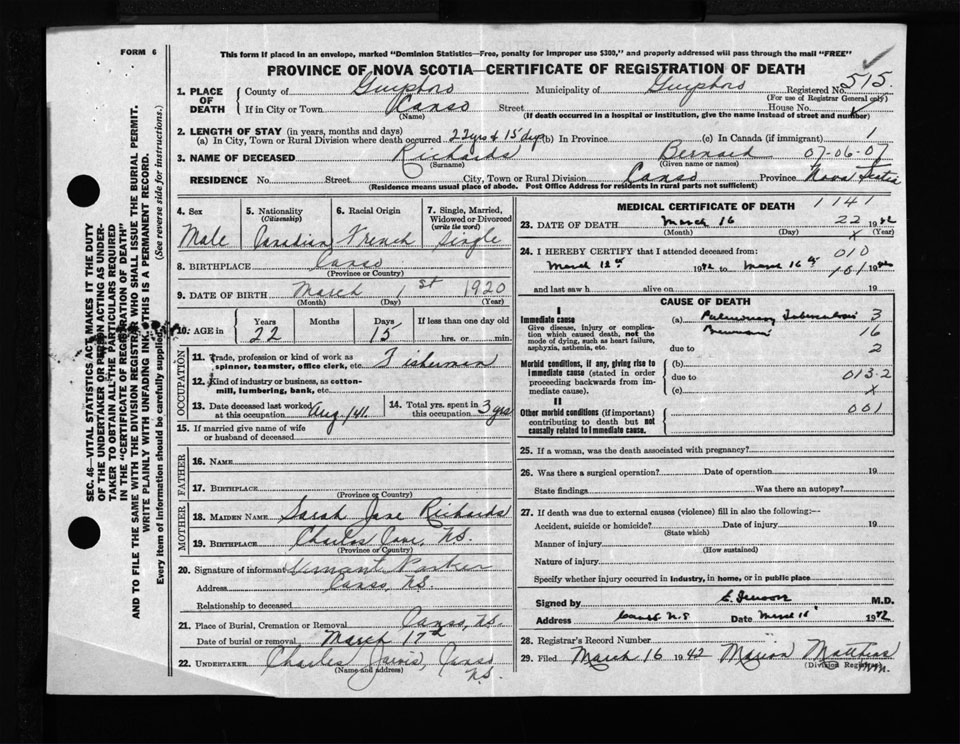 FORM 6
This form if placed in an envelope, marked "Dominion Statistics—Free, penalty for improper use $300," and properly addressed will pass through the mail "FREE"
PROVINCE OF NOVA SCOTIA—CERTIFICATE OF REGISTRATION OF DEATH
1. PLACE OF DEATH
County of Guysboro Municipality of Guysboro Registered No. 515
(For use of Registrar General only)
If in City or Town Canso Street House No.
(Name) (If death occurred in a hospital or institution, give the name instead of street and number)
2. LENGTH OF STAY (in years, months and days)
(a) In City, Town or Rural Division where death occurred 22 yrs & 15 days (b) In Province (c) In Canada (if immigrant) 1
3. NAME OF DECEASED Richards Bernard 07-06-07
(Surname) (Given name or names)
RESIDENCE No. Street City, Town or Rural Division Canso Province Nova Scotia
(Residence means usual place of abode. Post Office Address for residents in rural parts not sufficient)
4. Sex
Male
5. Nationality
(Citizenship)
Canadian
6. Racial Origin
French
7. Single, Married, Widowed or Divorced
(write the word)
Single
8. BIRTHPLACE Canso
(Province or Country)
9. DATE OF BIRTH March 1st 1920
(Month) (Day) (Year)
10. AGE in
Years Months Days If less than one day old
22 15 hrs. or min.
OCCUPATION
11. Trade, profession or kind of work as spinner, teamster, office clerk, etc. Fisherman
12. Kind of industry or business, as cotton-mill, lumbering, bank, etc.
13. Date deceased last worked at this occupation Aug/41
14. Total yrs. spent in this occupation 3 yrs
15. If married give name of wife or husband of deceased
FATHER
16. NAME
17. BIRTHPLACE
(Province or Country)
MOTHER
18. MAIDEN NAME Sarah Jane Richards
19. BIRTHPLACE Charlos Cove, N.S.
(Province or Country)
20. Signature of informant Parker
Address Canso, N.S.
Relationship to deceased
21. Place of Burial, Cremation or Removal Canso, N.S.
Date of burial or removal March 17th
22. UNDERTAKER Charles Jarvis, Canso N.S.
(Name and address)
MEDICAL CERTIFICATE OF DEATH 1141
23. DATE OF DEATH March 16 22 1942
(Month) (Day) X (Year)
24. I HEREBY CERTIFY that I attended deceased from: 010
March 12th 1942 to March 16th 1942
101
and last saw h alive on 19
CAUSE OF DEATH
I
Immediate cause
Give disease, injury or complication which caused death, not the mode of dying, such as heart failure, asphyxia, asthenia, etc.
(a) Pulmonary Tuberculosis 3
16
due to 2
Morbid conditions, if any, giving rise to immediate cause (stated in order proceeding backwards from immediate cause).
(b)
due to 013-2
(c) X
II
Other morbid conditions (if important) contributing to death but not causally related to immediate cause.
001
25. If a woman, was the death associated with pregnancy?
26. Was there a surgical operation? Date of operation 19
State findings Was there an autopsy?
27. If death was due to external causes (violence) fill in also the following:—
Accident, suicide or homicide? Date of injury 19
(State which)
Manner of injury
(How sustained)
Nature of injury
Specify whether injury occurred in industry, in home, or in public place
Signed by M.D.
Address Canso N.S Date March 16 1942
28. Registrar's Record Number
29. Filed March 16 1942 Marion Matthias
(Division Registrar)
SEC. 46—VITAL STATISTICS ACT, MAKES IT THE DUTY
OF THE UNDERTAKER OR PERSON ACTING AS UNDERTAKER TO OBTAIN ALL THE PARTICULARS REQUIRED
IN THE "CERTIFICATE OF REGISTRATION OF DEATH"
AND TO FILE THE SAME WITH THE DIVISION REGISTRAR WHO SHALL ISSUE THE BURIAL PERMIT.
WRITE PLAINLY WITH UNFADING INK. THIS IS A PERMANENT RECORD.
Every item of information should be carefully supplied. (See reverse side for instructions.)